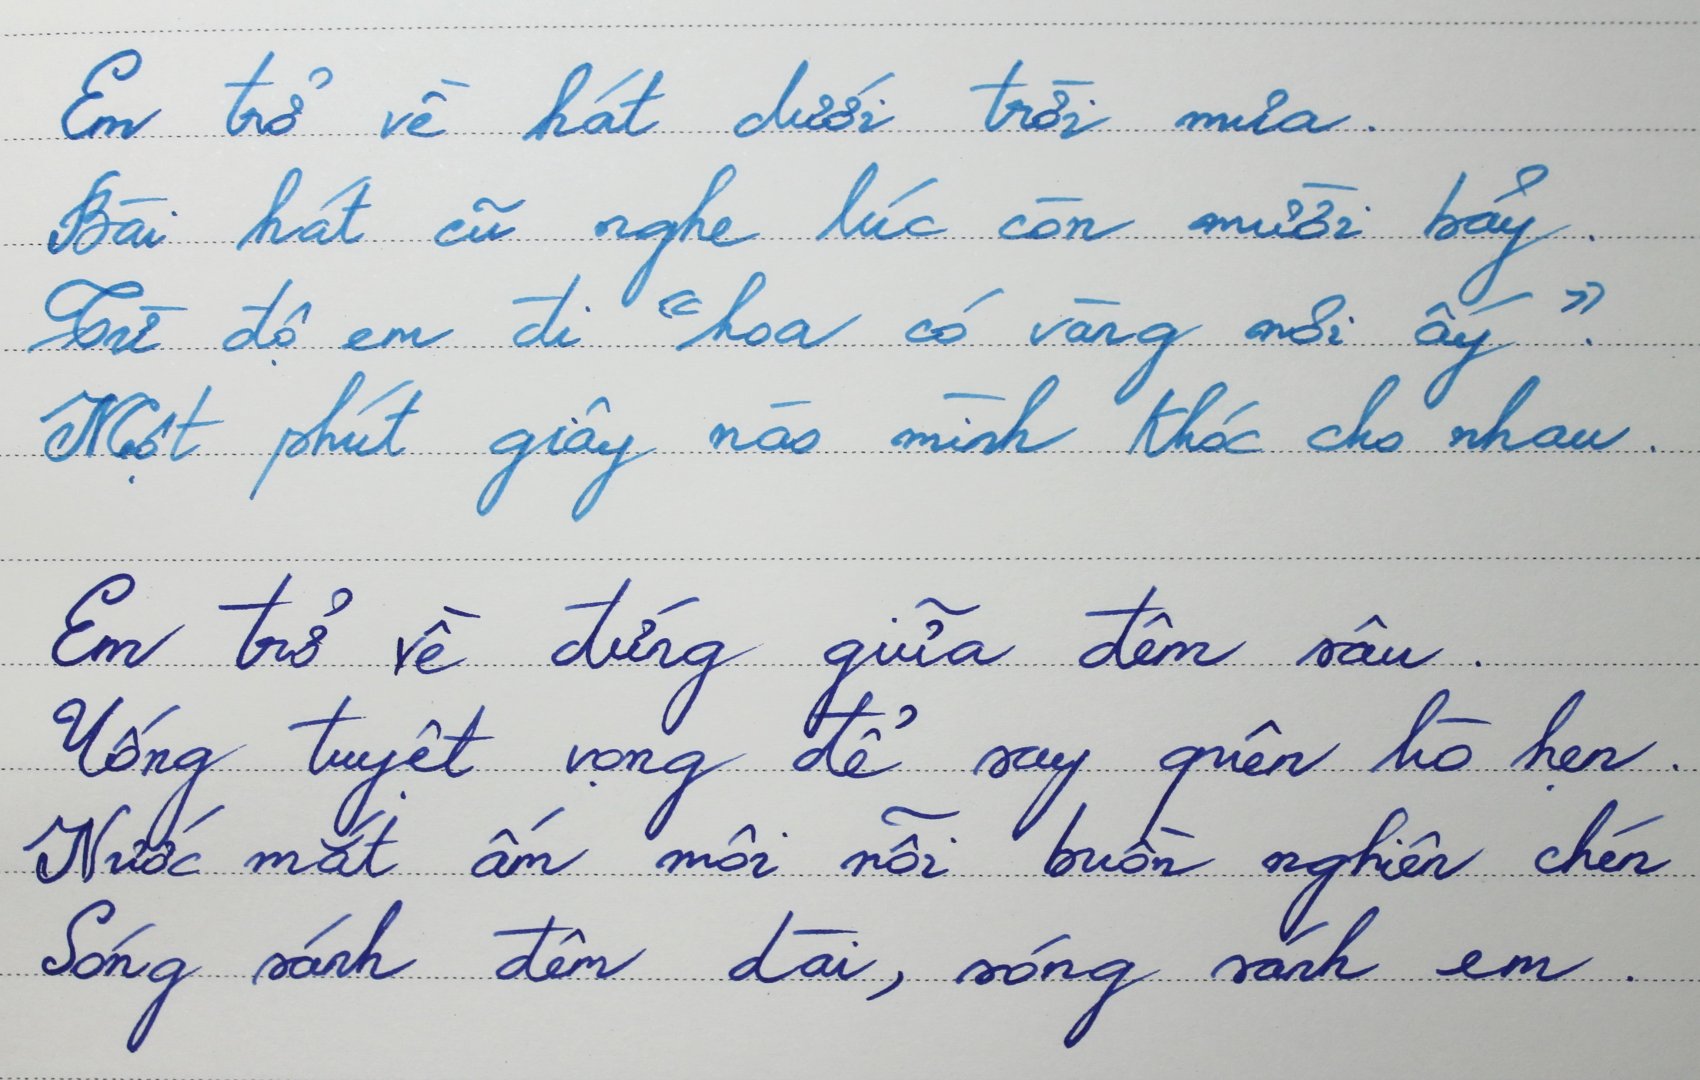 Em trở về hát dưới trời mưa.
Bài hát cũ nghe lúc còn mười bảy.
Từ độ em đi "hoa có vàng nơi ấy".
Một phút giây nào mình khóc cho nhau.
Em trở về đứng giữa đêm sâu.
Uống tuyệt vọng để say quên lò hẹn.
Nước mắt ấm môi nỗi buồn nghiên chén
Sóng sánh đêm dài, sóng sánh em.